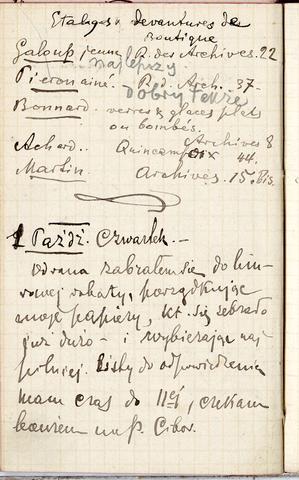 Etalages & Devantures de
Boutique
Galoup, jeune R. des Archives. 22
najlepszy.
Pieron ainé. Rod. Arch. 37.
dobry także
Bonnard. verres & glaces plats
ou bombés.
Archives 8
Achard.. Quincampoix 44.
Martin. Archives. 15. Bis.
1 Paźdź. Czwartek. —
Od rana zabrałem się do biu-
rowej roboty, porządkując
moje papiery, kt. się zebrało
już dużo – i wybierając naj
pilniej. listy do odpowiedzenia
mam czas do 11ej, czekam
bowiem na P. Cibor.